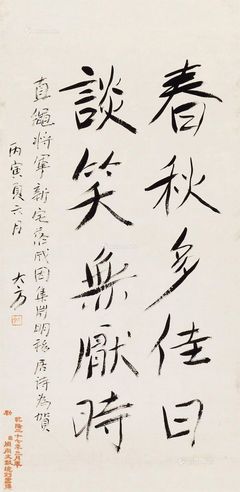 春秋多佳日
談笑無厭時
直繩將軍新宅落成因集陶明移居詩為賀
丙寅夏六月
大方